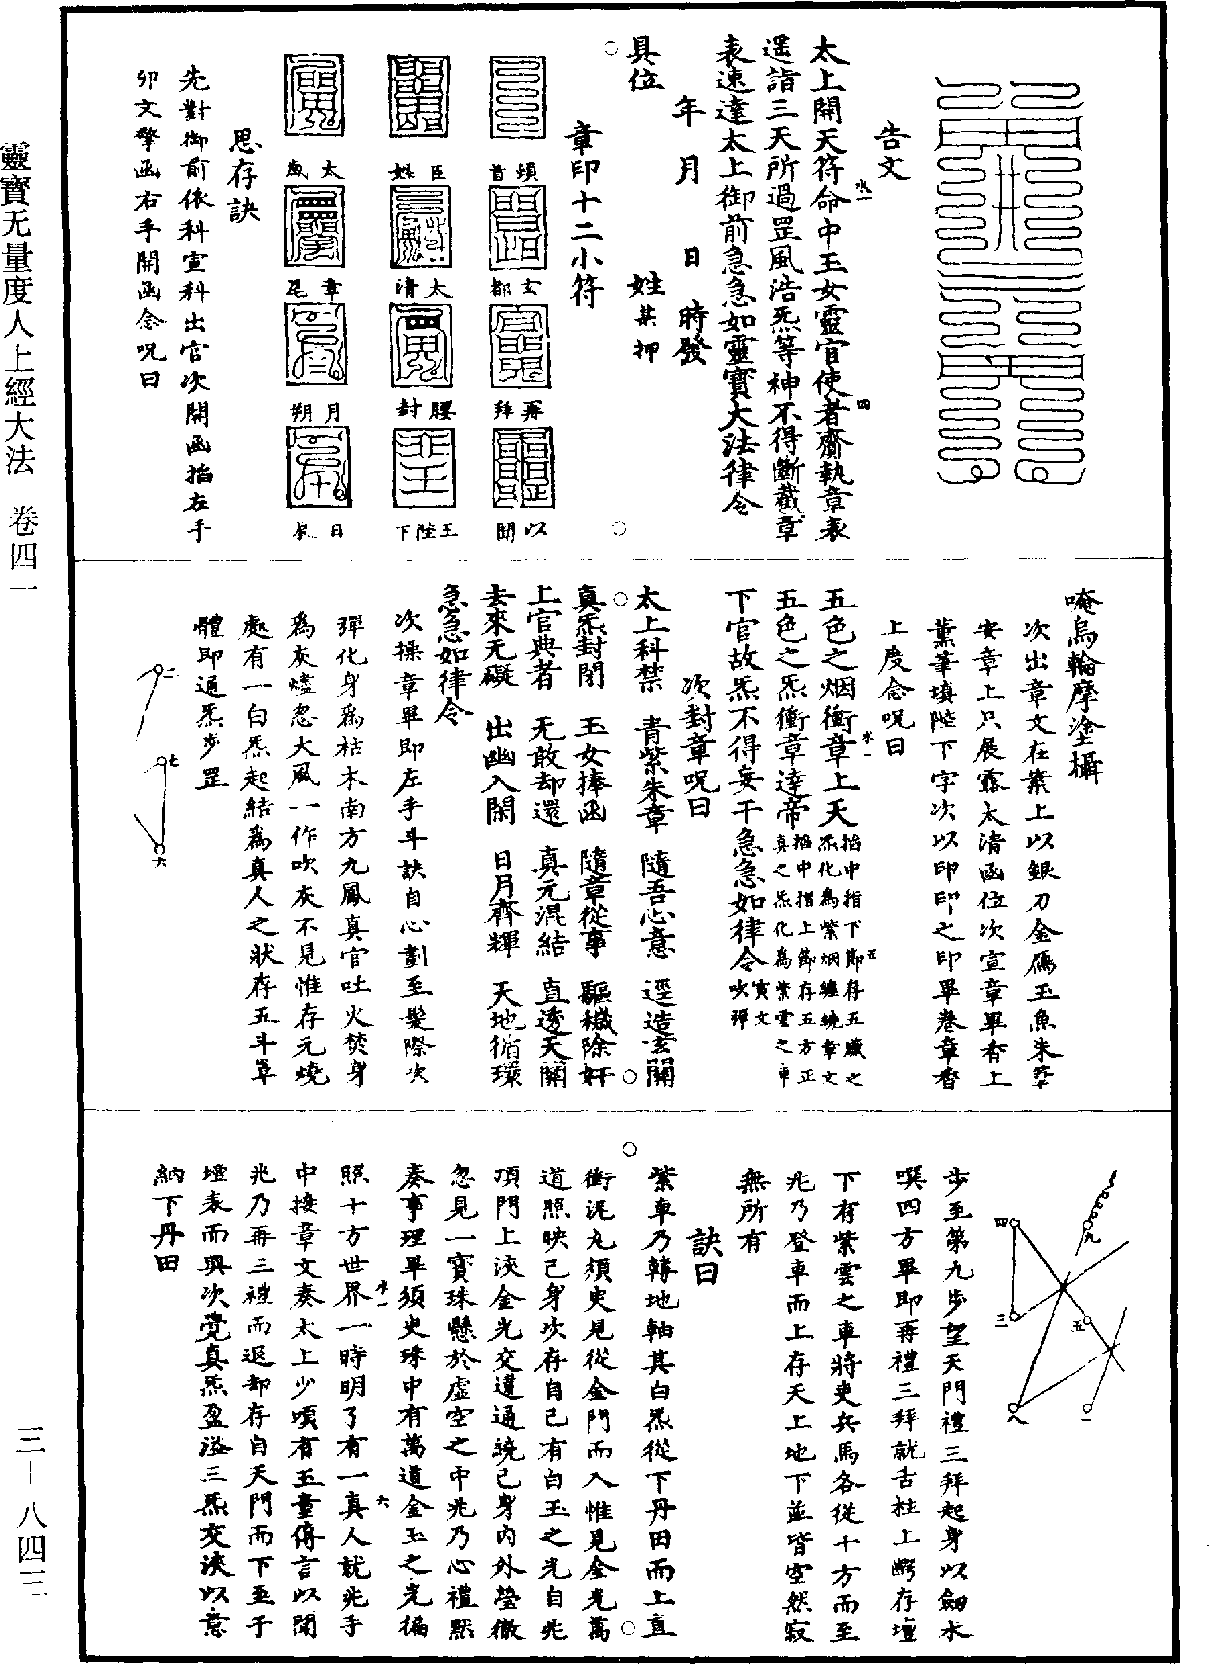 靈寶无量度人上經大法　卷四一
三—八四三
告文
太上開天符命中王女靈官使者齎執章表
遥詣三天所過罡風浩炁等神不得斷截章
表速達太上御前急急如靈寶大法律令
年　月　日　時發
具位　姓某押
章印十二小符
頓首
玄都
再拜
以聞
臣姓
太清
腰封
王陛下
太歲
章尾
月朔
日辰
思存訣
先對御前依科宣科出官次開函掐左手
卯文擎函右手開函念呪曰
唵烏輪摩塗攝
次出章文在案上以銀刀金碼玉魚朱筆
安章上只展露太清函位次宣章畢香上
薰筆填陛下字次以印印之印畢卷章香
上度念呪曰
五色之烟衝章上天掐中指下節存五臟之炁化為紫烟纏繞章文
五色之炁衝章達帝掐中指上節存五方正真之炁化為紫雲之車
下官故炁不得妄干急急如律令寅文吹彈
次封章呪曰
太上科禁　青紫朱章　隨吾心意　逕造玄關
真炁封閉　玉女捧函　隨章從事　驅穢除奸
上官典者　无敢却還　真元混結　直透天關
去來无礙　出幽入閑　日月齊輝　天地循環
急急如律令
次操章畢即左手斗訣自心劃至髮際次
彈化身為枯木南方九鳳真官吐火焚身
為灰燼忽大風一作吹灰不見惟存元燒
處有一白炁起結為真人之狀存五斗罩
體即通炁步罡
二
七
六
九
四
三
五
八
一
步至第九步望天門禮三拜起身以劍水
噀四方畢即再禮三拜就舌柱上腭存壇
下有紫雲之車將吏兵馬各從十方而至
兆乃登車而上存天上地下並皆空然寂
無所有
訣曰
紫車乃轉地軸其白炁從下丹田而上直
衝泥丸須臾見從金門而入惟見金光萬
道照映己身次存自己有白玉之光自兆
頂門上浹金光交遶通繞己身內外瑩徹
忽見一寶珠懸於虛空之中兆乃心禮默
奏事理畢須臾珠中有萬道金玉之光徧
照十方世界一時明了有一真人就兆手
中接章文奏太上少頃有玉童傳言以聞
兆乃再三禮而退却存自天門而下至于
壇表而興次覺真炁盈溢三炁交浹以意
納下丹田